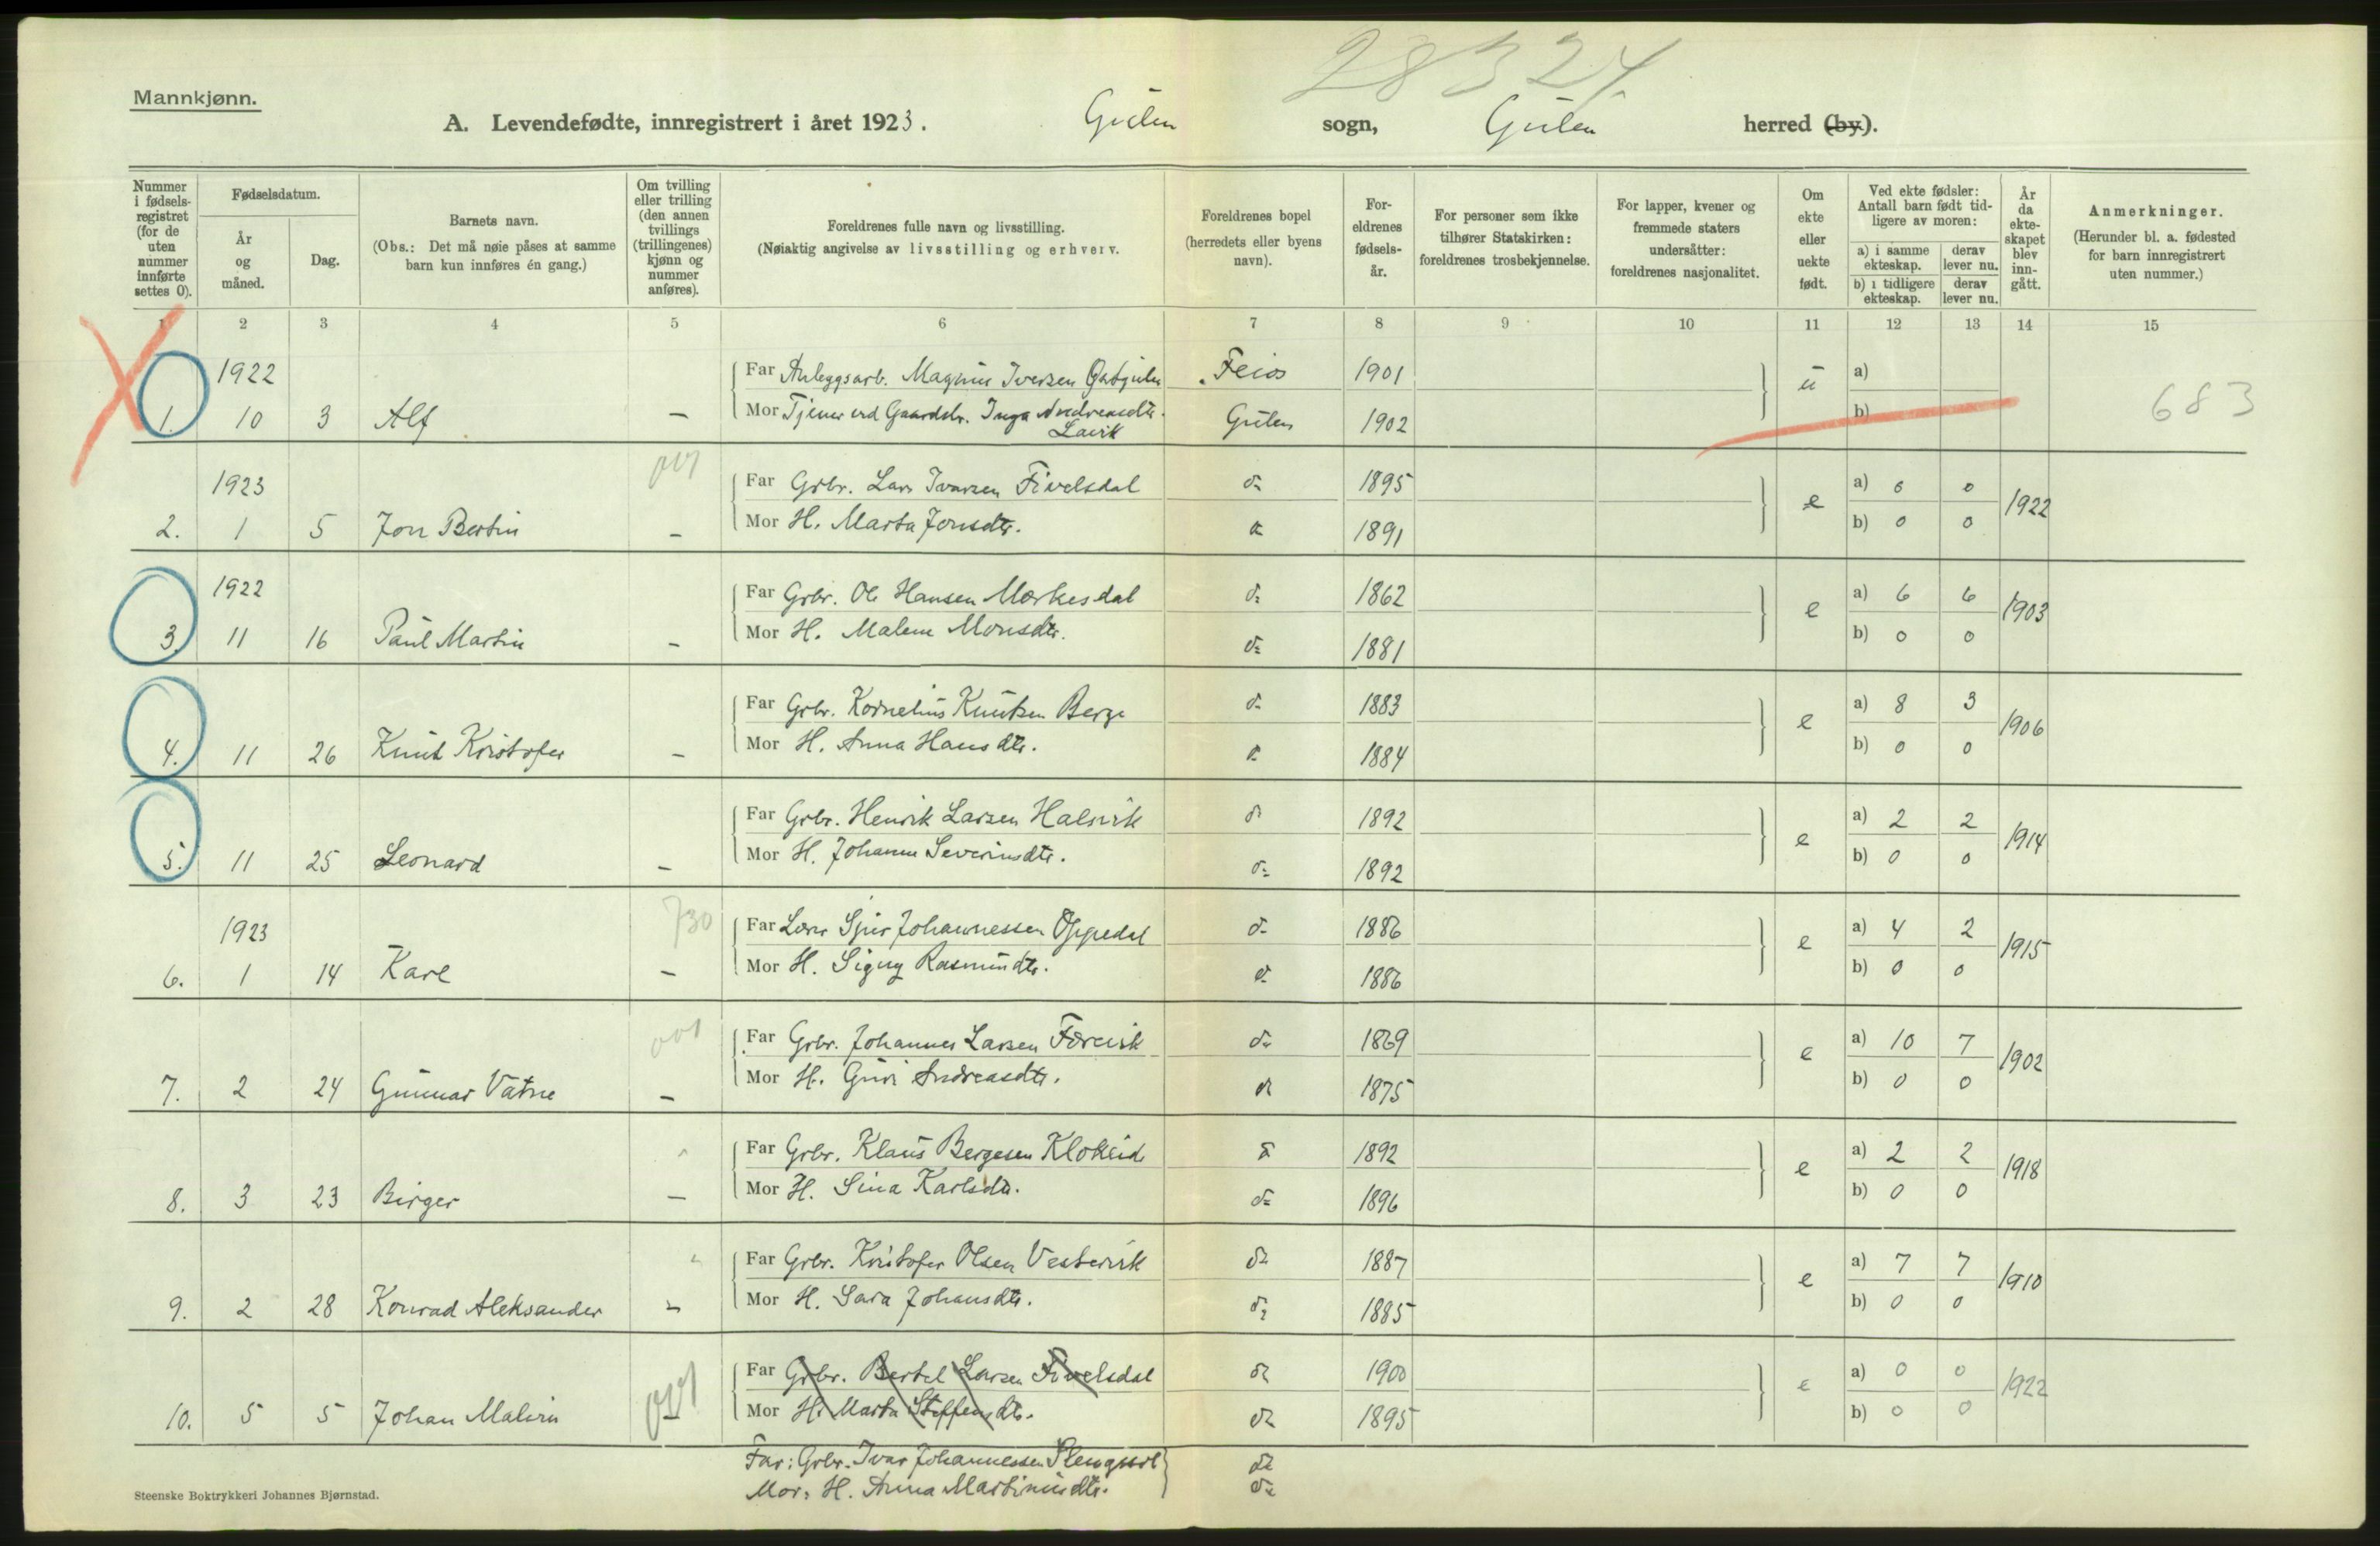 28324
Mannkjønn.
A. Levendefødte, innregistrert i året 1923. Gulen sogn, Gulen herred (by).
Nummer i fødsels-registret (for de uten nummer innførte settes 0).
Fødselsdatum.
År og måned.
Dag.
Barnets navn.
(Obs.: Det må nøie påses at samme barn kun innføres én gang.)
Om tvilling eller trilling (den annen tvillings (trillingenes) kjønn og nummer anføres).
Foreldrenes fulle navn og livsstilling.
(Nøiaktig angivelse av livsstilling og erhverv.
Foreldrenes bopel (herredets eller byens navn).
For-eldrenes fødsels-år.
For personer som ikke tilhører Statskirken: foreldrenes trosbekjennelse.
For lapper, kvener og fremmede staters undersåtter: foreldrenes nasjonalitet.
Om ekte eller uekte født.
Ved ekte fødsler: Antall barn født tid-ligere av moren:
a) i samme ekteskap.
derav lever nu.
b) i tidligere ekteskap.
derav lever nu.
År da ekte-skapet blev inn-gått.
Anmerkninger.
(Herunder bl. a. fødested for barn innregistrert uten nummer.)
1 2 3 4 5 6 7 8 9 10 11 12 13 14 15
1922 Far Anleggsarb. Magnus Iversen Feios 1901 u a)
1. 10 3 Alf – Mor Tjener ved Gaardsbr. Inga Andreasdtr. Lavik Gulen 1902 b) 683
1923 001 Far Grbr. Lars Ivarsen Fivelsdal do 1895 e a) 0 0 1922
2. 1 5 Jon Bertin – Mor H. Marta Jonsdtr. do 1891 b) 0 0
1922 Far Grbr. Ole Hansen Mørkesdal do 1862 e a) 6 6 1903
3. 11 16 Paul Martin – Mor H. Malene Monsdtr. do 1881 b) 0 0
Far Grbr. Kornelius Knutsen Berge do 1883 e a) 8 3 1906
4. 11 26 Knut Kristofer – Mor H. Anna Hansdtr. do 1884 b) 0 0
Far Grbr. Henrik Larsen Halsvik do 1892 e a) 2 2 1914
5. 11 25 Leonard – Mor H. Johanne Severinsdtr. do 1892 b) 0 0
1923 730 Far Lærer Sjur Johannessen Oppedal do 1886 e a) 4 2 1915
6. 1 14 Kare – Mor H. Signy Rasmusdtr. do 1886 b) 0 0
001 Far Grbr. Johannes Larsen Færøvik do 1869 e a) 10 7 1902
7. 2 24 Gunnar Vatne – Mor H. Guri Andreasdtr. do 1875 b) 0 0
Far Grbr. Klaus Bergesen Klokeide do 1892 e a) 2 2 1918
8. 3 23 Birger – Mor H. Sina Karlsdtr. do 1896 b) 0 0
Far Grbr. Kristofer Olsen Vestervik do 1887 e a) 7 7 1910
9. 2 28 Konrad Aleksander – Mor H. Sara Johansdtr. do 1885 b) 0 0
001 Far Grbr. Bertel Larsen Fivelsdal do 1900 e a) 0 0 1922
10. 5 5 Johan Malvin – Mor H. Marta Steffensdtr. do 1895 b) 0 0
Far: Grbr. Ivar Johannessen do
Mor: H. Anna Martinusdtr. do
Steenske Boktrykkeri Johannes Bjørnstad.